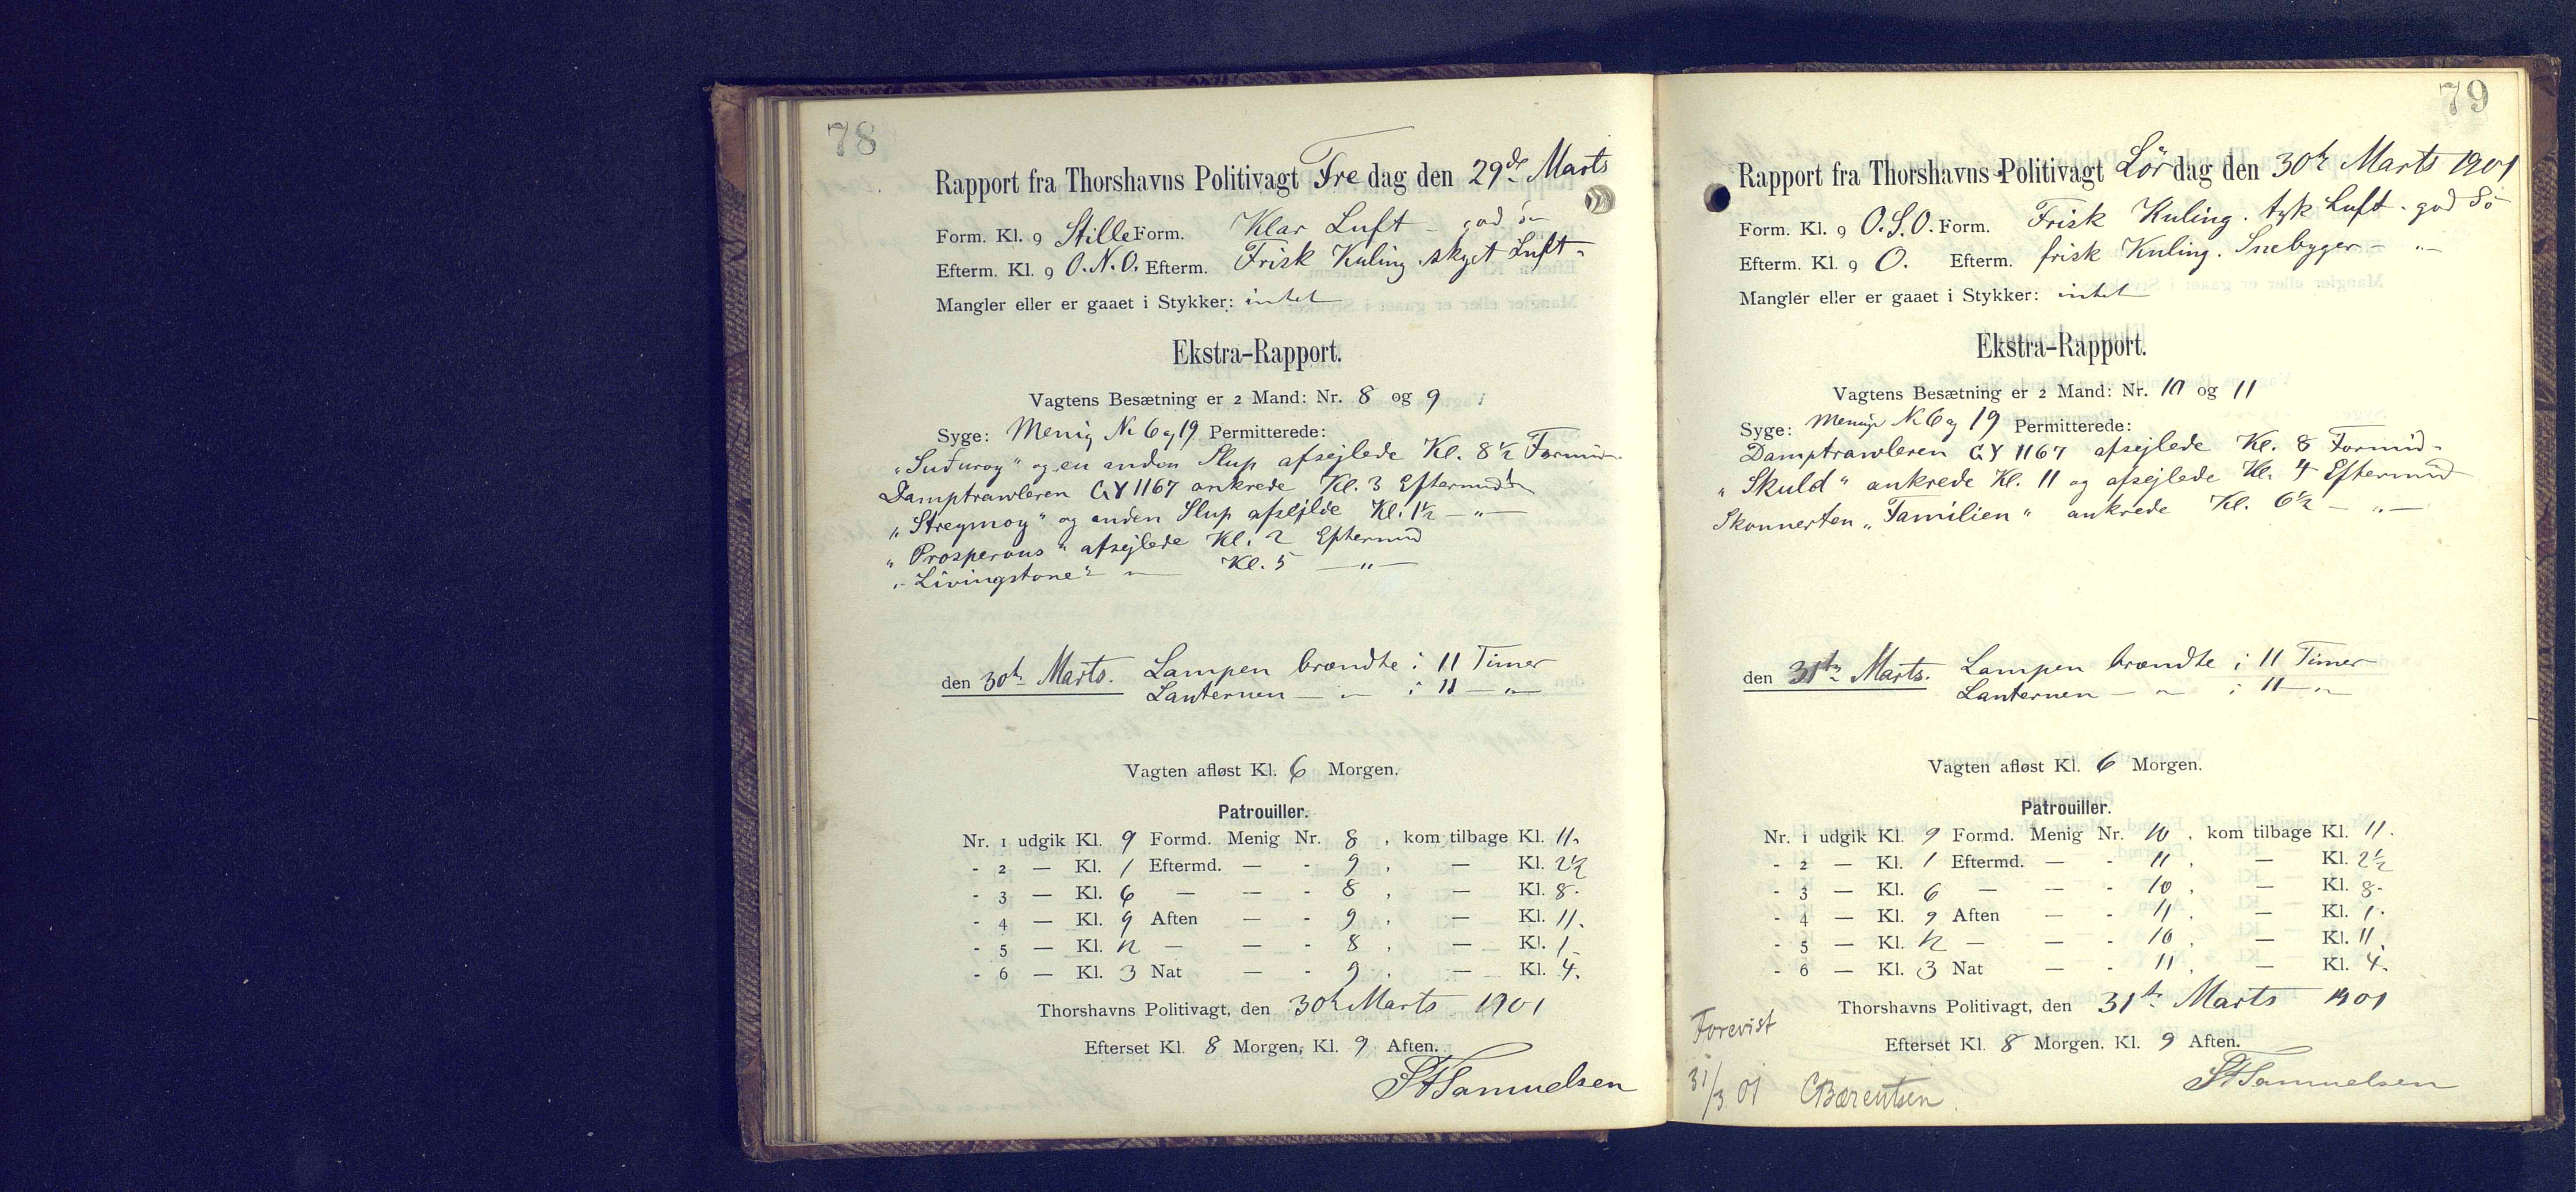 78
Rapport fra Thorshavns Politivagt Fredag den 29de Marts
Form. Kl. 9 Stille Form. Klar Luft - god Sö
Efterm. Kl. 9 O.N.O. Efterm. Frisk Kuling skyet Luft -
Mangler eller er gaaet i Stykker: intet
Ekstra-Rapport.
Vagtens Besætning er 2 Mand: Nr. 8 og 9
Syge: Menig No 6 og 19 Permitterede:
"Suduroy" og en anden Slup afsejlede Kl. 8½ Formid
Damptrawleren GY 1167 ankrede Kl. 3 Eftermid
"Streymoy" og anden Slup afsejlde Kl. 1½ - " -
"Prosperous" afsejlede Kl. 2 Eftermid
"Livingstone" - " - Kl. 5 - " -
den 30te Marts. Lampen brændte i 11 Timer
Lanternen - " - i 11 - " -
Vagten afløst Kl. 6 Morgen.
Patrouiller.
Nr. 1 udgik Kl. 9 Formd. Menig Nr. 8, kom tilbage Kl. 11.
- 2 — Kl. 1 Eftermd. — - 9, — Kl. 2½
- 3 — Kl. 6 — — - 8, — Kl. 8.
- 4 — Kl. 9 Aften — - 9, — Kl. 11.
- 5 — Kl. 12 — — - 8, — Kl. 1
- 6 — Kl. 3 Nat — - 9, — Kl. 4.
Thorshavns Politivagt, den 30te Marts 1901
Efterset Kl. 8 Morgen, Kl. 9 Aften.
Samuelsen
79
Rapport fra Thorshavns Politivagt Lördag den 30te Marts 1901
Form. Kl. 9 O.S.O. Form. Frisk Kuling. tyk Luft - god Sö
Efterm. Kl. 9 O. Efterm. frisk Kuling. Snebyger - " -
Mangler eller er gaaet i Stykker: intet
Ekstra-Rapport.
Vagtens Besætning er 2 Mand: Nr. 10 og 11
Syge: Menige No 6 og 19 Permitterede:
Damptrawleren GY 1167 afsejlede Kl. 8 Formid -
"Skuld" ankrede Kl. 11 og afsejlede Kl. 4 Eftermid
Skonnerten "Familien" ankrede Kl. 6½ - " -
den 31te Marts. Lampen brændte i 11 Timer
Lanternen - " - i 11 - " -
Vagten afløst Kl. 6 Morgen.
Patrouiller.
Nr. 1 udgik Kl. 9 Formd. Menig Nr. 10, kom tilbage Kl. 11.
- 2 — Kl. 1 Eftermd. — - 11, — Kl. 2½
- 3 — Kl. 6 — — - 10, — Kl. 8.
- 4 — Kl. 9 Aften — - 11, — Kl. 1.
- 5 — Kl. 12 — — - 10, — Kl. 11.
- 6 — Kl. 3 Nat — - 11, — Kl. 4.
Thorshavns Politivagt, den 31te Marts 1901
Efterset Kl. 8 Morgen. Kl. 9 Aften.
Samuelsen
Forevist
31/3 01 CBærentsen